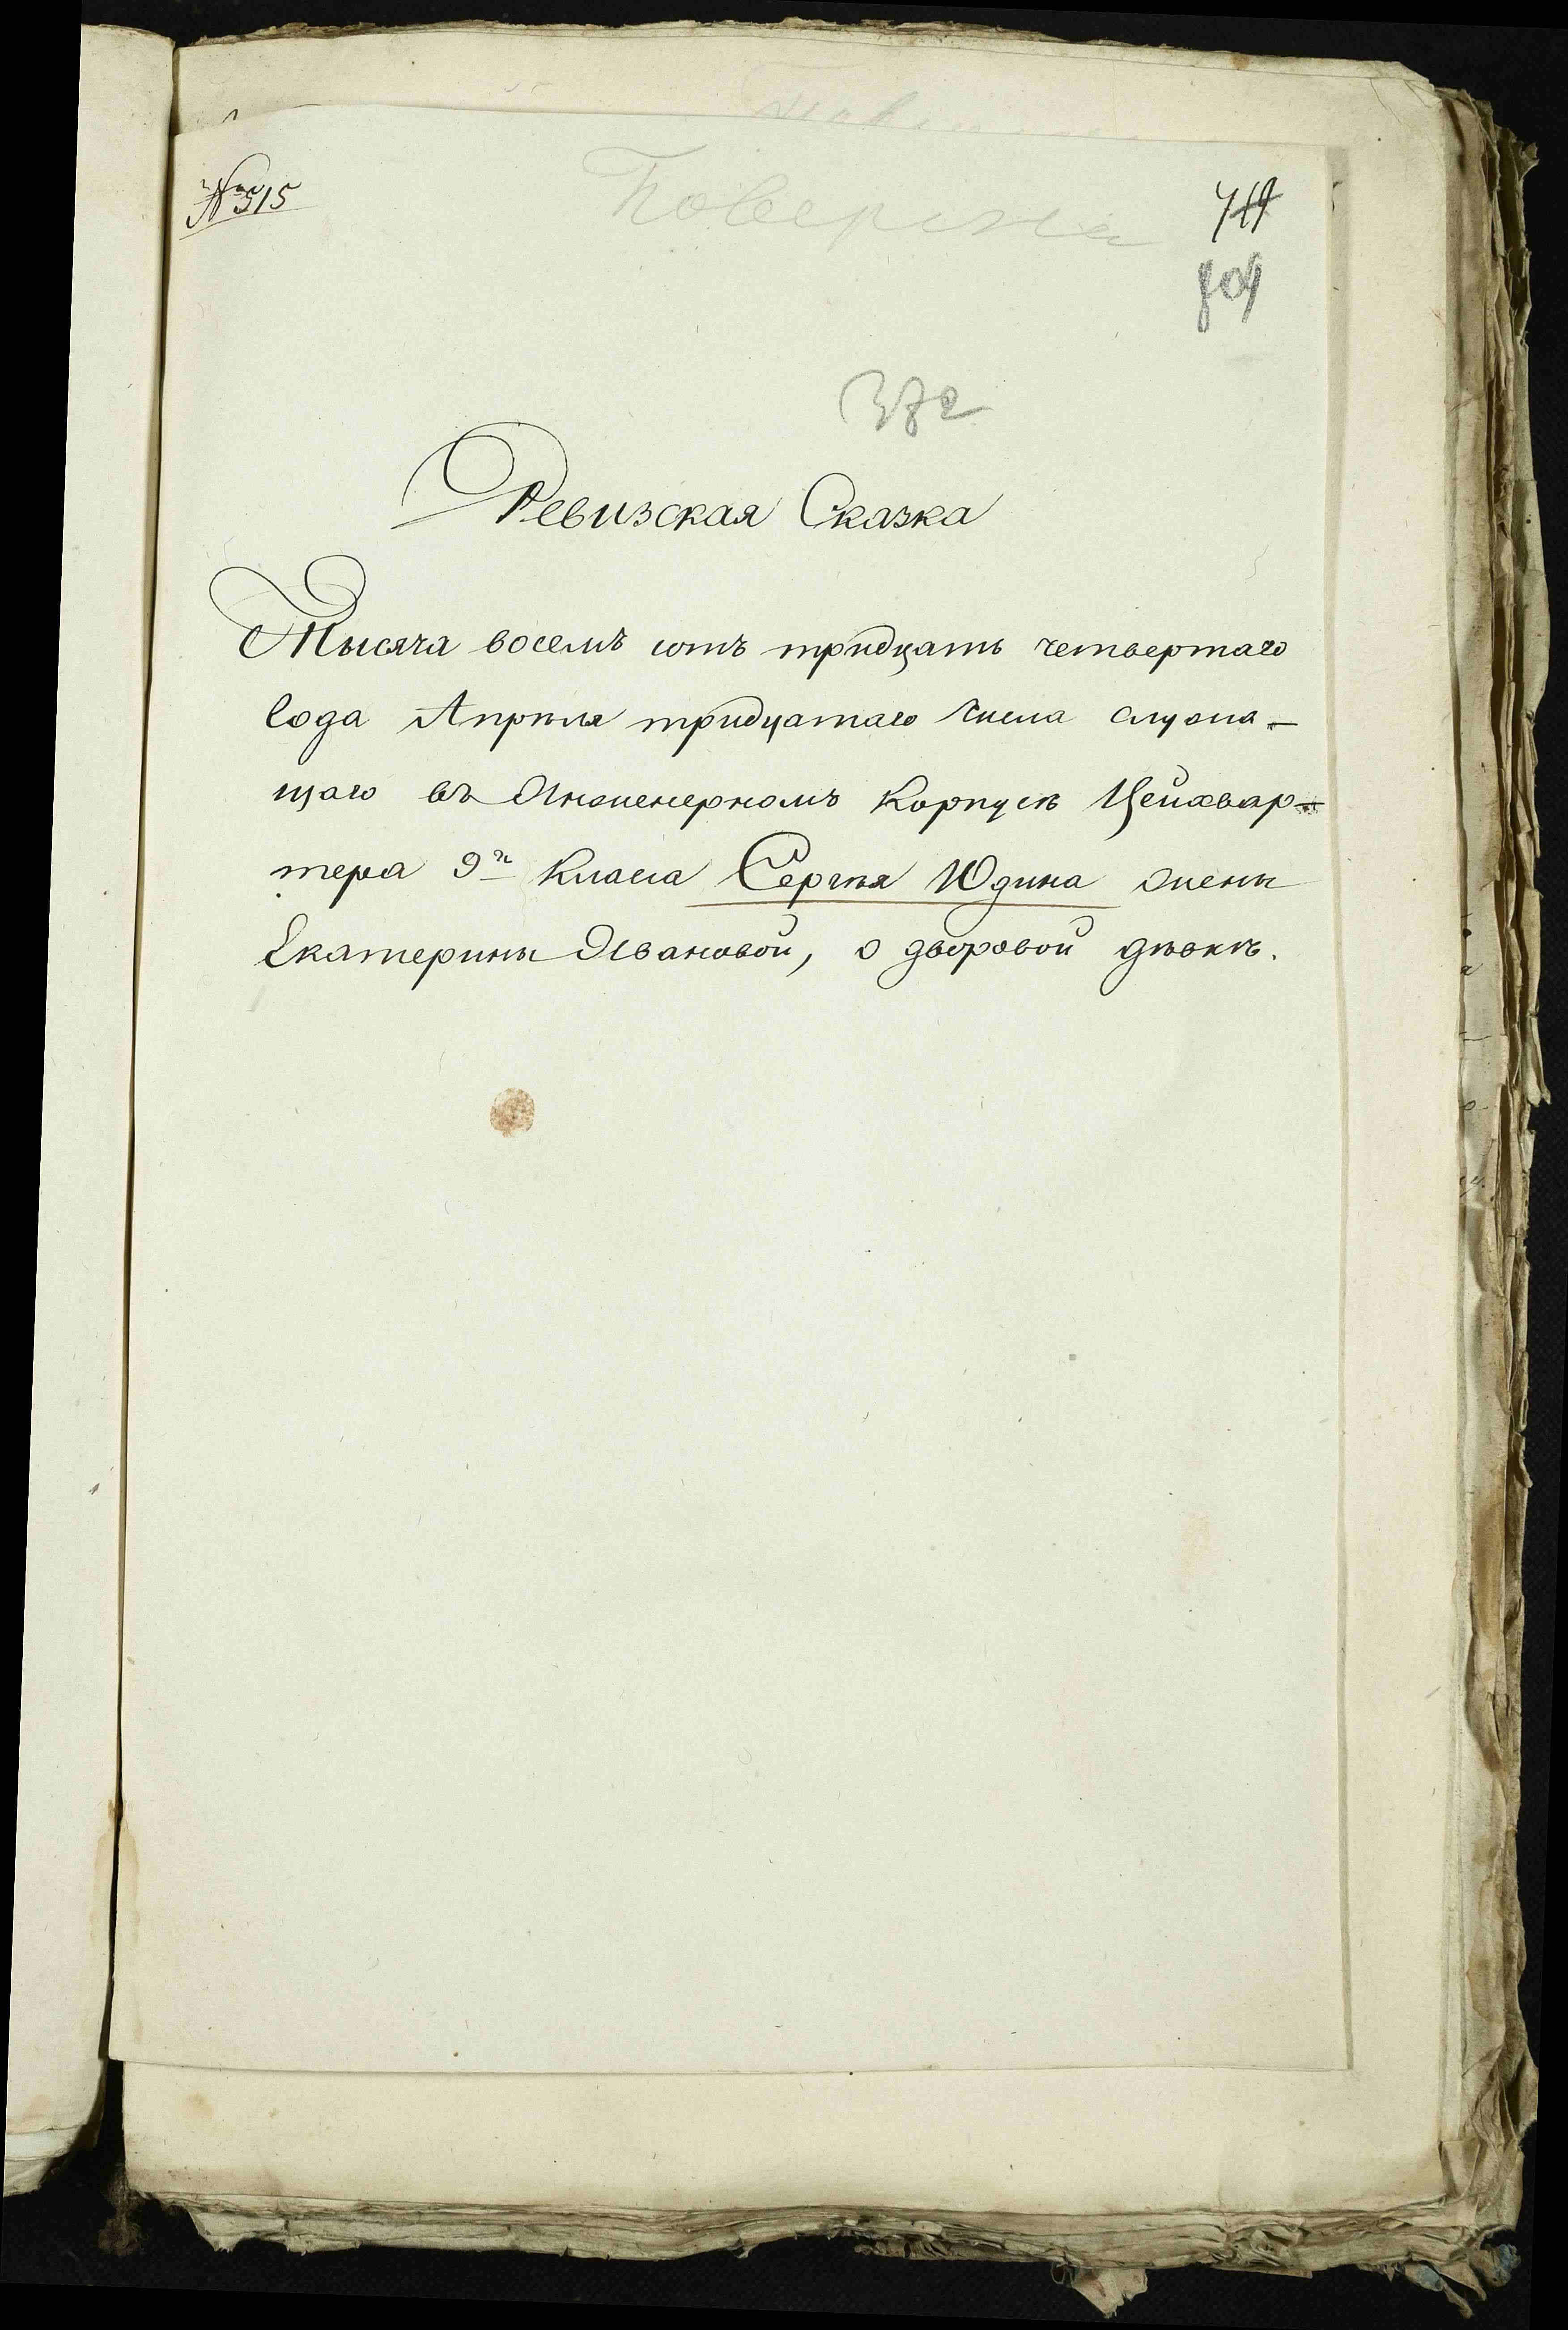 № 515
Поверена
372
Ревизская Сказка
Тысяча восемъ сотъ тридцать четвертаго
Года Апрѣля тридцатаго числа служа-
щаго въ Инженерномъ Корпусѣ Цейхвар-
тера 9г класса Сергѣя Юдина жены
Екатерины Ивановой, о дворовой дѣвкѣ.